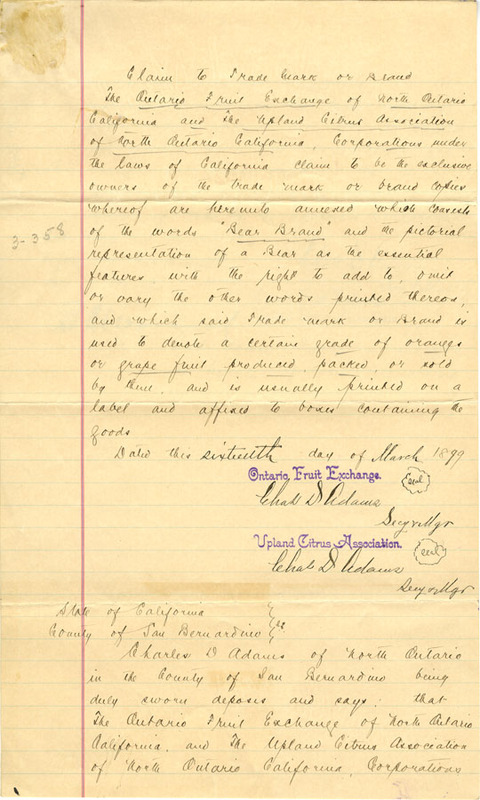 Claim to Trade Mark or Brand
The Ontario Fruit Exchange of North Ontario
California and The Upland Citrus Association
of North Ontario California, Corporations under
the laws of California claim to be the exclusive
owners of the trade mark or brand copies
whereof are hereunto annexed which consists
of the words "Bear Brand" and the pictorial
3-358
representation of a Bear as the essential
features with the right to add to, omit
or vary the other words printed thereon,
and which said Trade mark or Brand is
used to denote a certain grade of oranges
or grape fruit produced, packed, or sold
by them, and is usually printed on a
label and affixed to boxes containing the
goods
Dated this sixteenth day of March 1899
Ontario Fruit Exchange.
seal
Chas D Adams
Secy & Mgr
Upland Citrus Association.
seal
Chas D Adams
Secy & Mgr
State of California
County of San Bernardino } ss
Charles D Adams of North Ontario
in the County of San Bernardino being
duly sworn deposes and says: that
The Ontario Fruit Exchange of North Ontario
California, and The Upland Citrus Association
of North Ontario California, Corporations